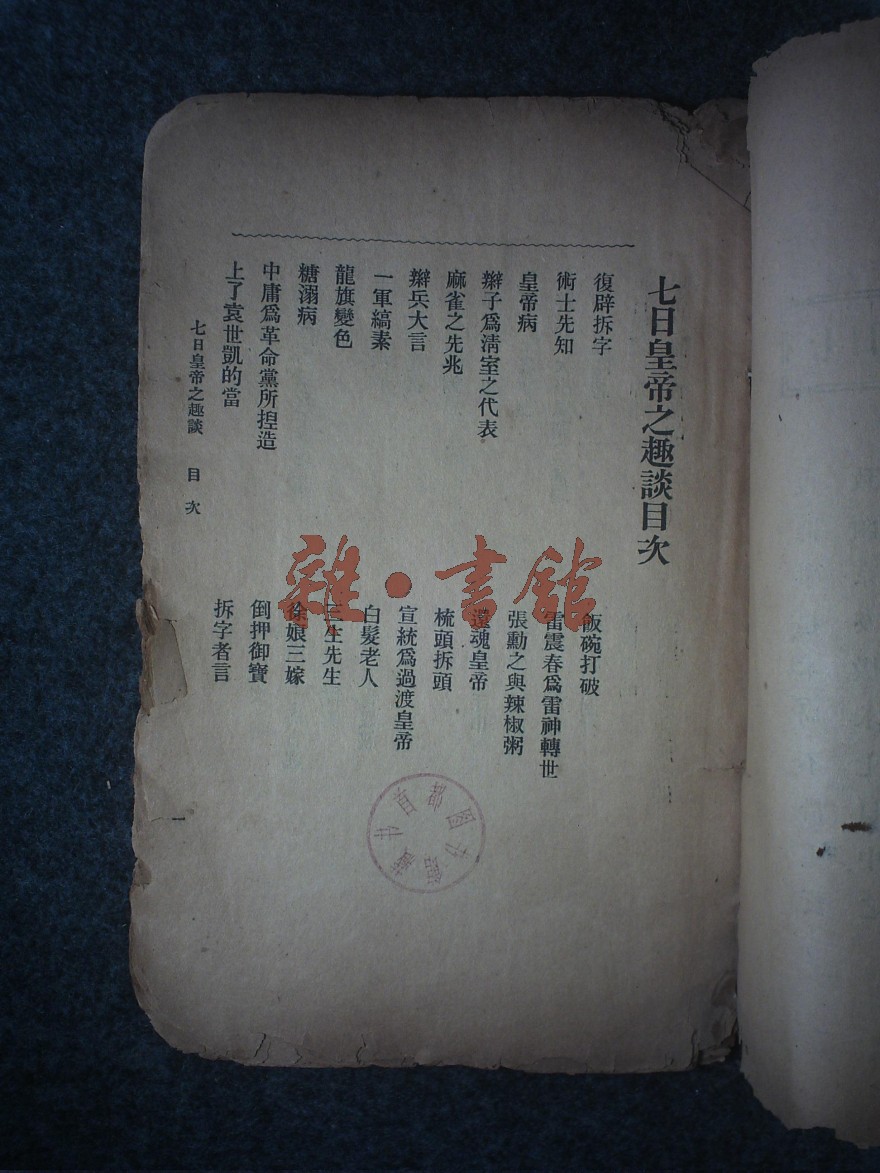 七日皇帝之趣談目次
復辟拆字
飯碗打破
術士先知
雷震春爲雷神轉世
皇帝病
張勳之與辣椒粥
辮子爲淸室之代表
還魂皇帝
麻雀之先兆
梳頭拆頭
辮兵大言
宣統爲過渡皇帝
一軍縞素
白髮老人
龍旗變色
三生先生
糖溺病
徐娘三嫁
中庸爲革命黨所揑造
倒押御寶
上了袁世凱的當
拆字者言
七日皇帝之趣談 目次
雜·書館